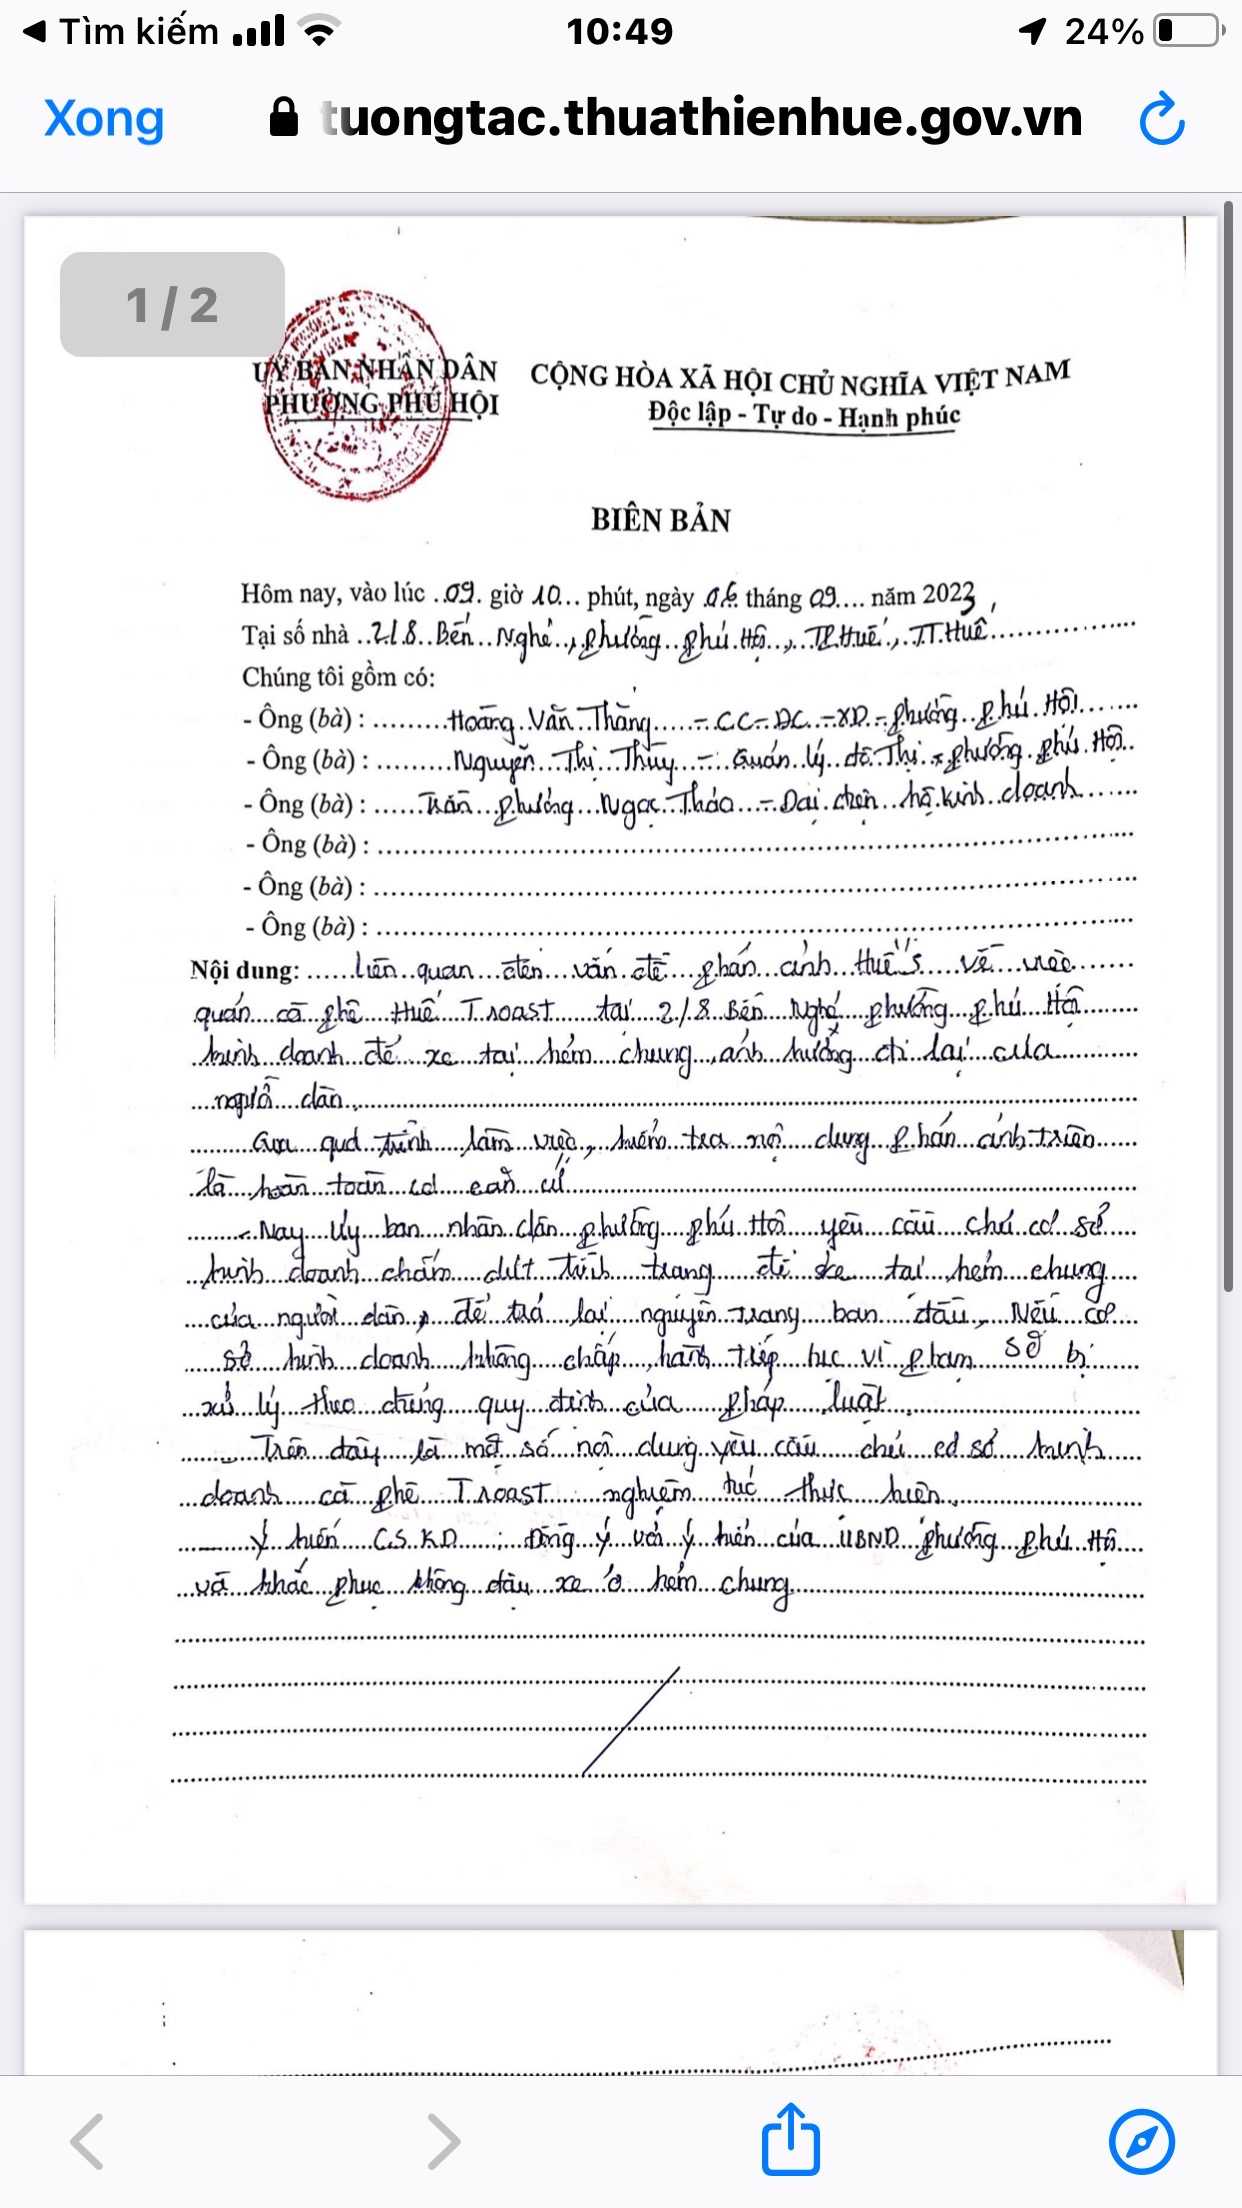 Tìm kiếm 10:49 24%
Xong tuongtac.thuathienhue.gov.vn
1 / 2
UỶ BAN NHÂN DÂN CỘNG HÒA XÃ HỘI CHỦ NGHĨA VIỆT NAM
PHƯỜNG PHÚ HỘI Độc lập - Tự do - Hạnh phúc
BIÊN BẢN
Hôm nay, vào lúc 09 giờ 10 phút, ngày 06 tháng 09 năm 2023,
Tại số nhà 2/8 Bến Nghé, phường phú Hội, TP.Huế, TT.Huế
Chúng tôi gồm có:
- Ông (bà) : Hoàng Văn Thắng - CC-ĐC-XD-phường phú Hội
- Ông (bà) : Nguyễn Thị Thùy - Quản lý đô Thị - phường phú Hội
- Ông (bà) : Trần phương Ngọc Thảo - Đại diện hộ kinh doanh
- Ông (bà) :
- Ông (bà) :
- Ông (bà) :
Nội dung: Liên quan đến vấn đề phản ánh Huế's về việc
quán cà phê Huế Troast tại 2/8 Bến Nghé phường phú Hội
kinh doanh để xe tại hẻm chung, ảnh hưởng đi lại của
người dân.
Qua quá trình làm việc, kiểm tra nội dung phản ánh trên
là hoàn toàn có căn cứ
- Nay Uỷ ban nhân dân phường phú Hội yêu cầu chủ cơ sở
kinh doanh chấm dứt tình trạng để xe tại hẻm chung
của người dân, để trả lại nguyên trạng ban đầu, Nếu cơ
sở kinh doanh không chấp hành tiếp tục vi phạm sẽ bị
xử lý theo đúng quy định của pháp luật.
Trên đây là một số nội dung yêu cầu chủ cơ sở kinh
doanh cà phê Troast nghiêm túc thực hiện.
Ý kiến C.S.K.D : Đồng ý với ý kiến của UBND phường phú Hội
và khắc phục không đậu xe ở hẻm chung